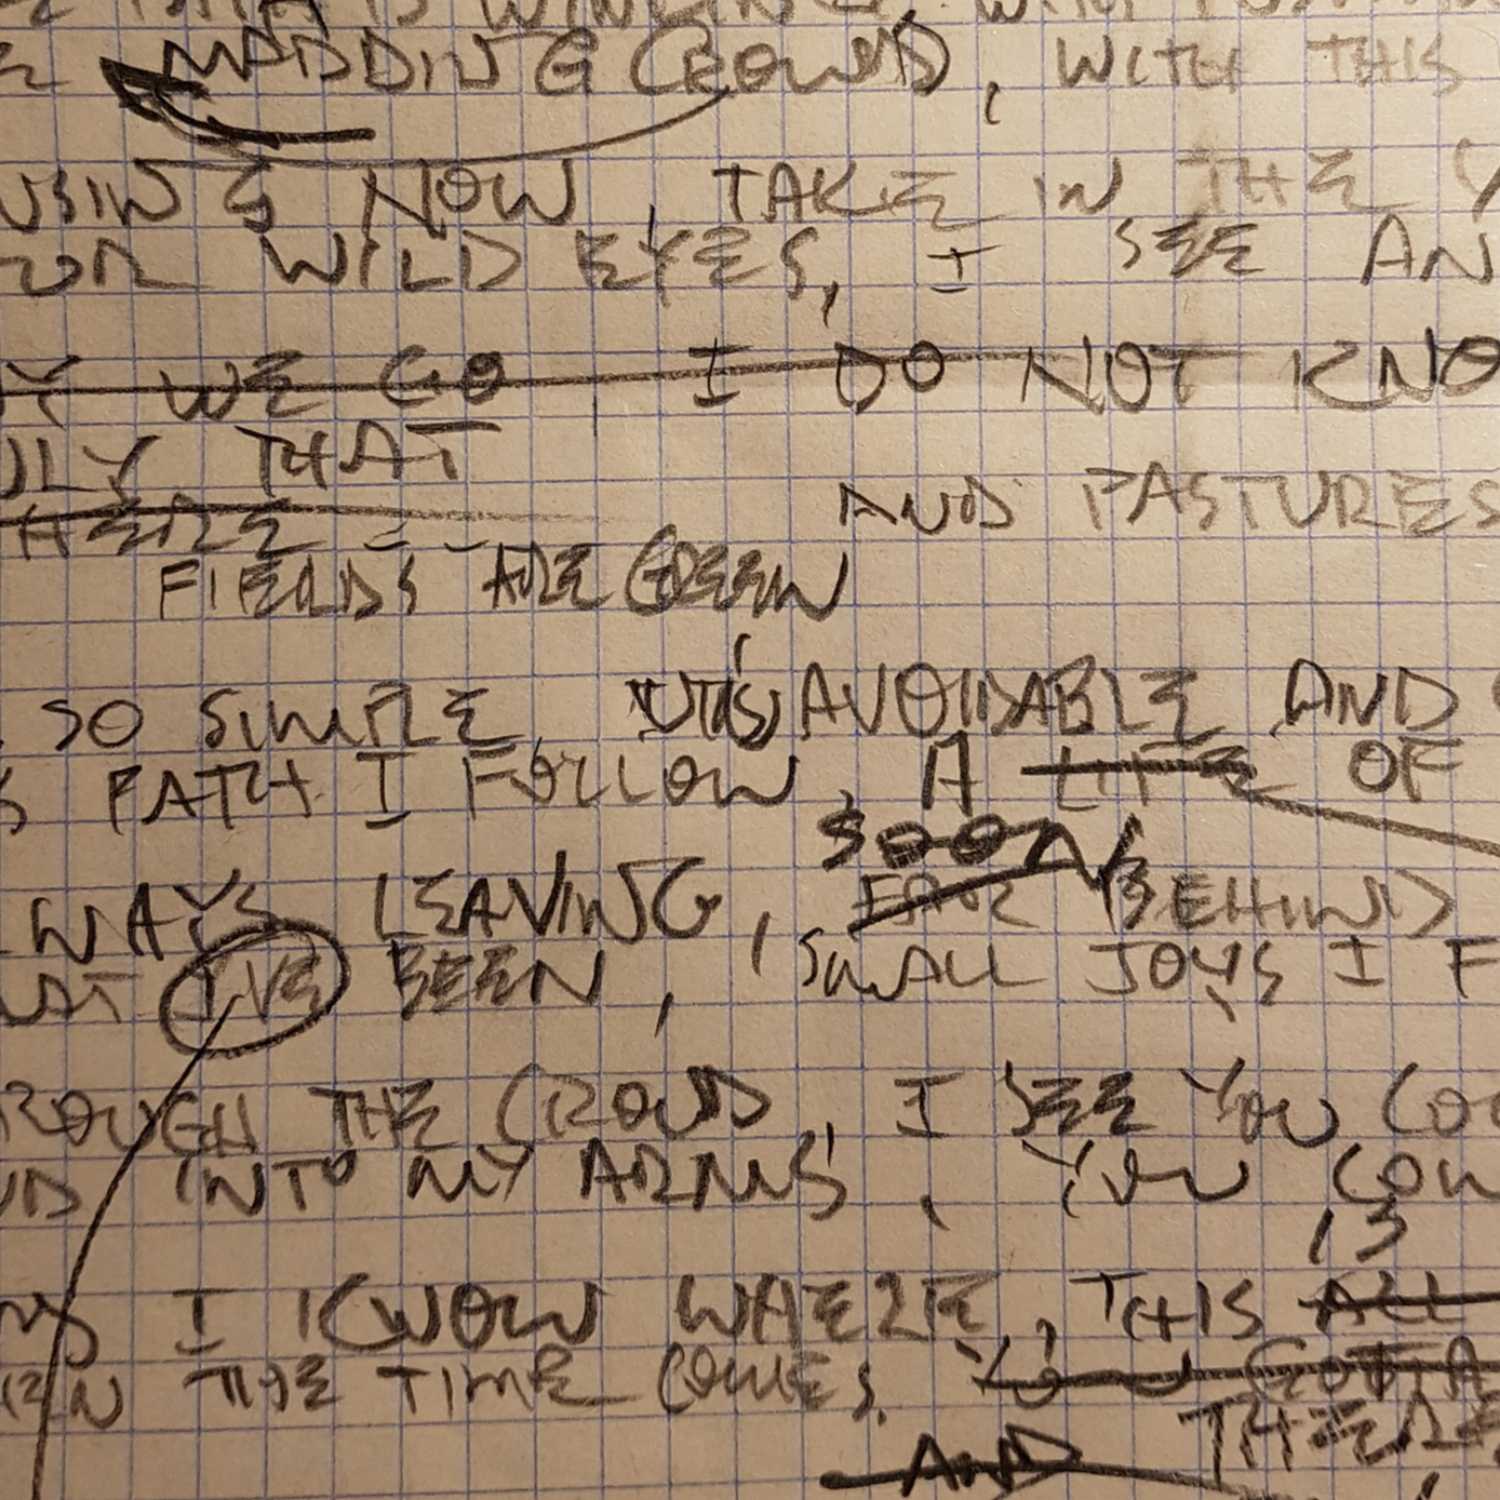 MADDING CROWD, WITH THIS
NOW, TAKE IN THE
WILD EYES, I SEE AN
WE GO, I DO NOT KNO
THAT
HERE
AND PASTURES
FIELDS ARE GREEN
SO SIMPLE, IT'S AVOIDABLE AND
PATH I FOLLOW, A LIFE OF
SOON
WAYS LEAVING, FAR BEHIND
I'VE BEEN, SMALL JOYS I F
ROUGH THE CROWD, I SEE YOU CO
INTO MY ARMS, YOU COM
IS
I KNOW WHERE, THIS ALL
THE TIME COMES, YOU GOTTA
THERE
AND